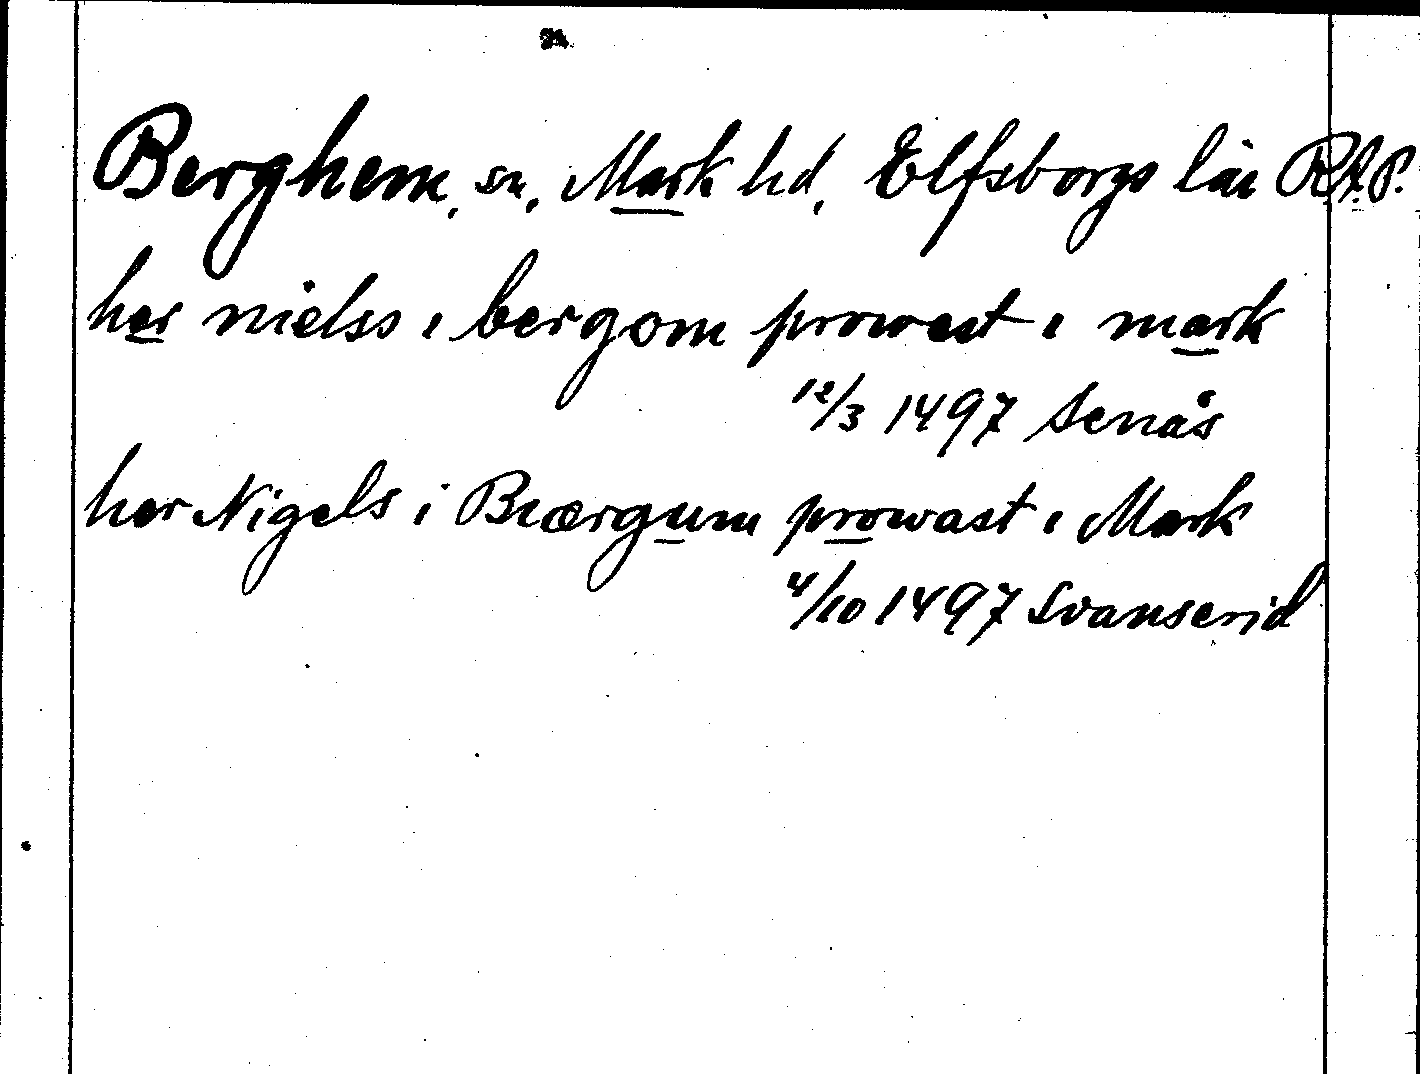 Berghem, sn, Mark hd, Elfsborgs län R.A.P.
her nielss i bergom prowest i mark
12/3 1497 Senås
her Nigels i Bærgum prowast i Mark
4/10 1497 Svanserid